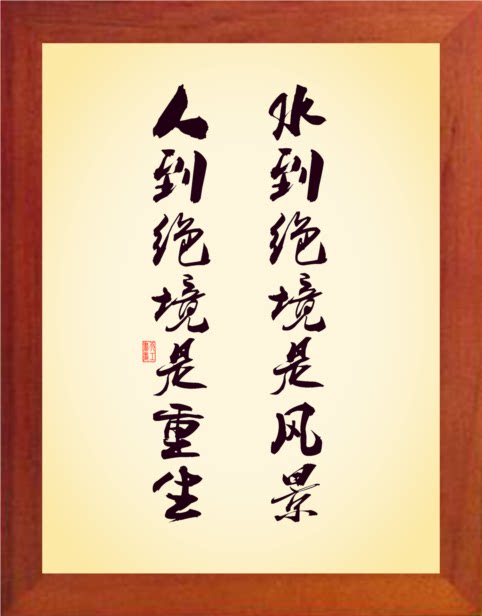 水到绝境是风景
人到绝境是重生